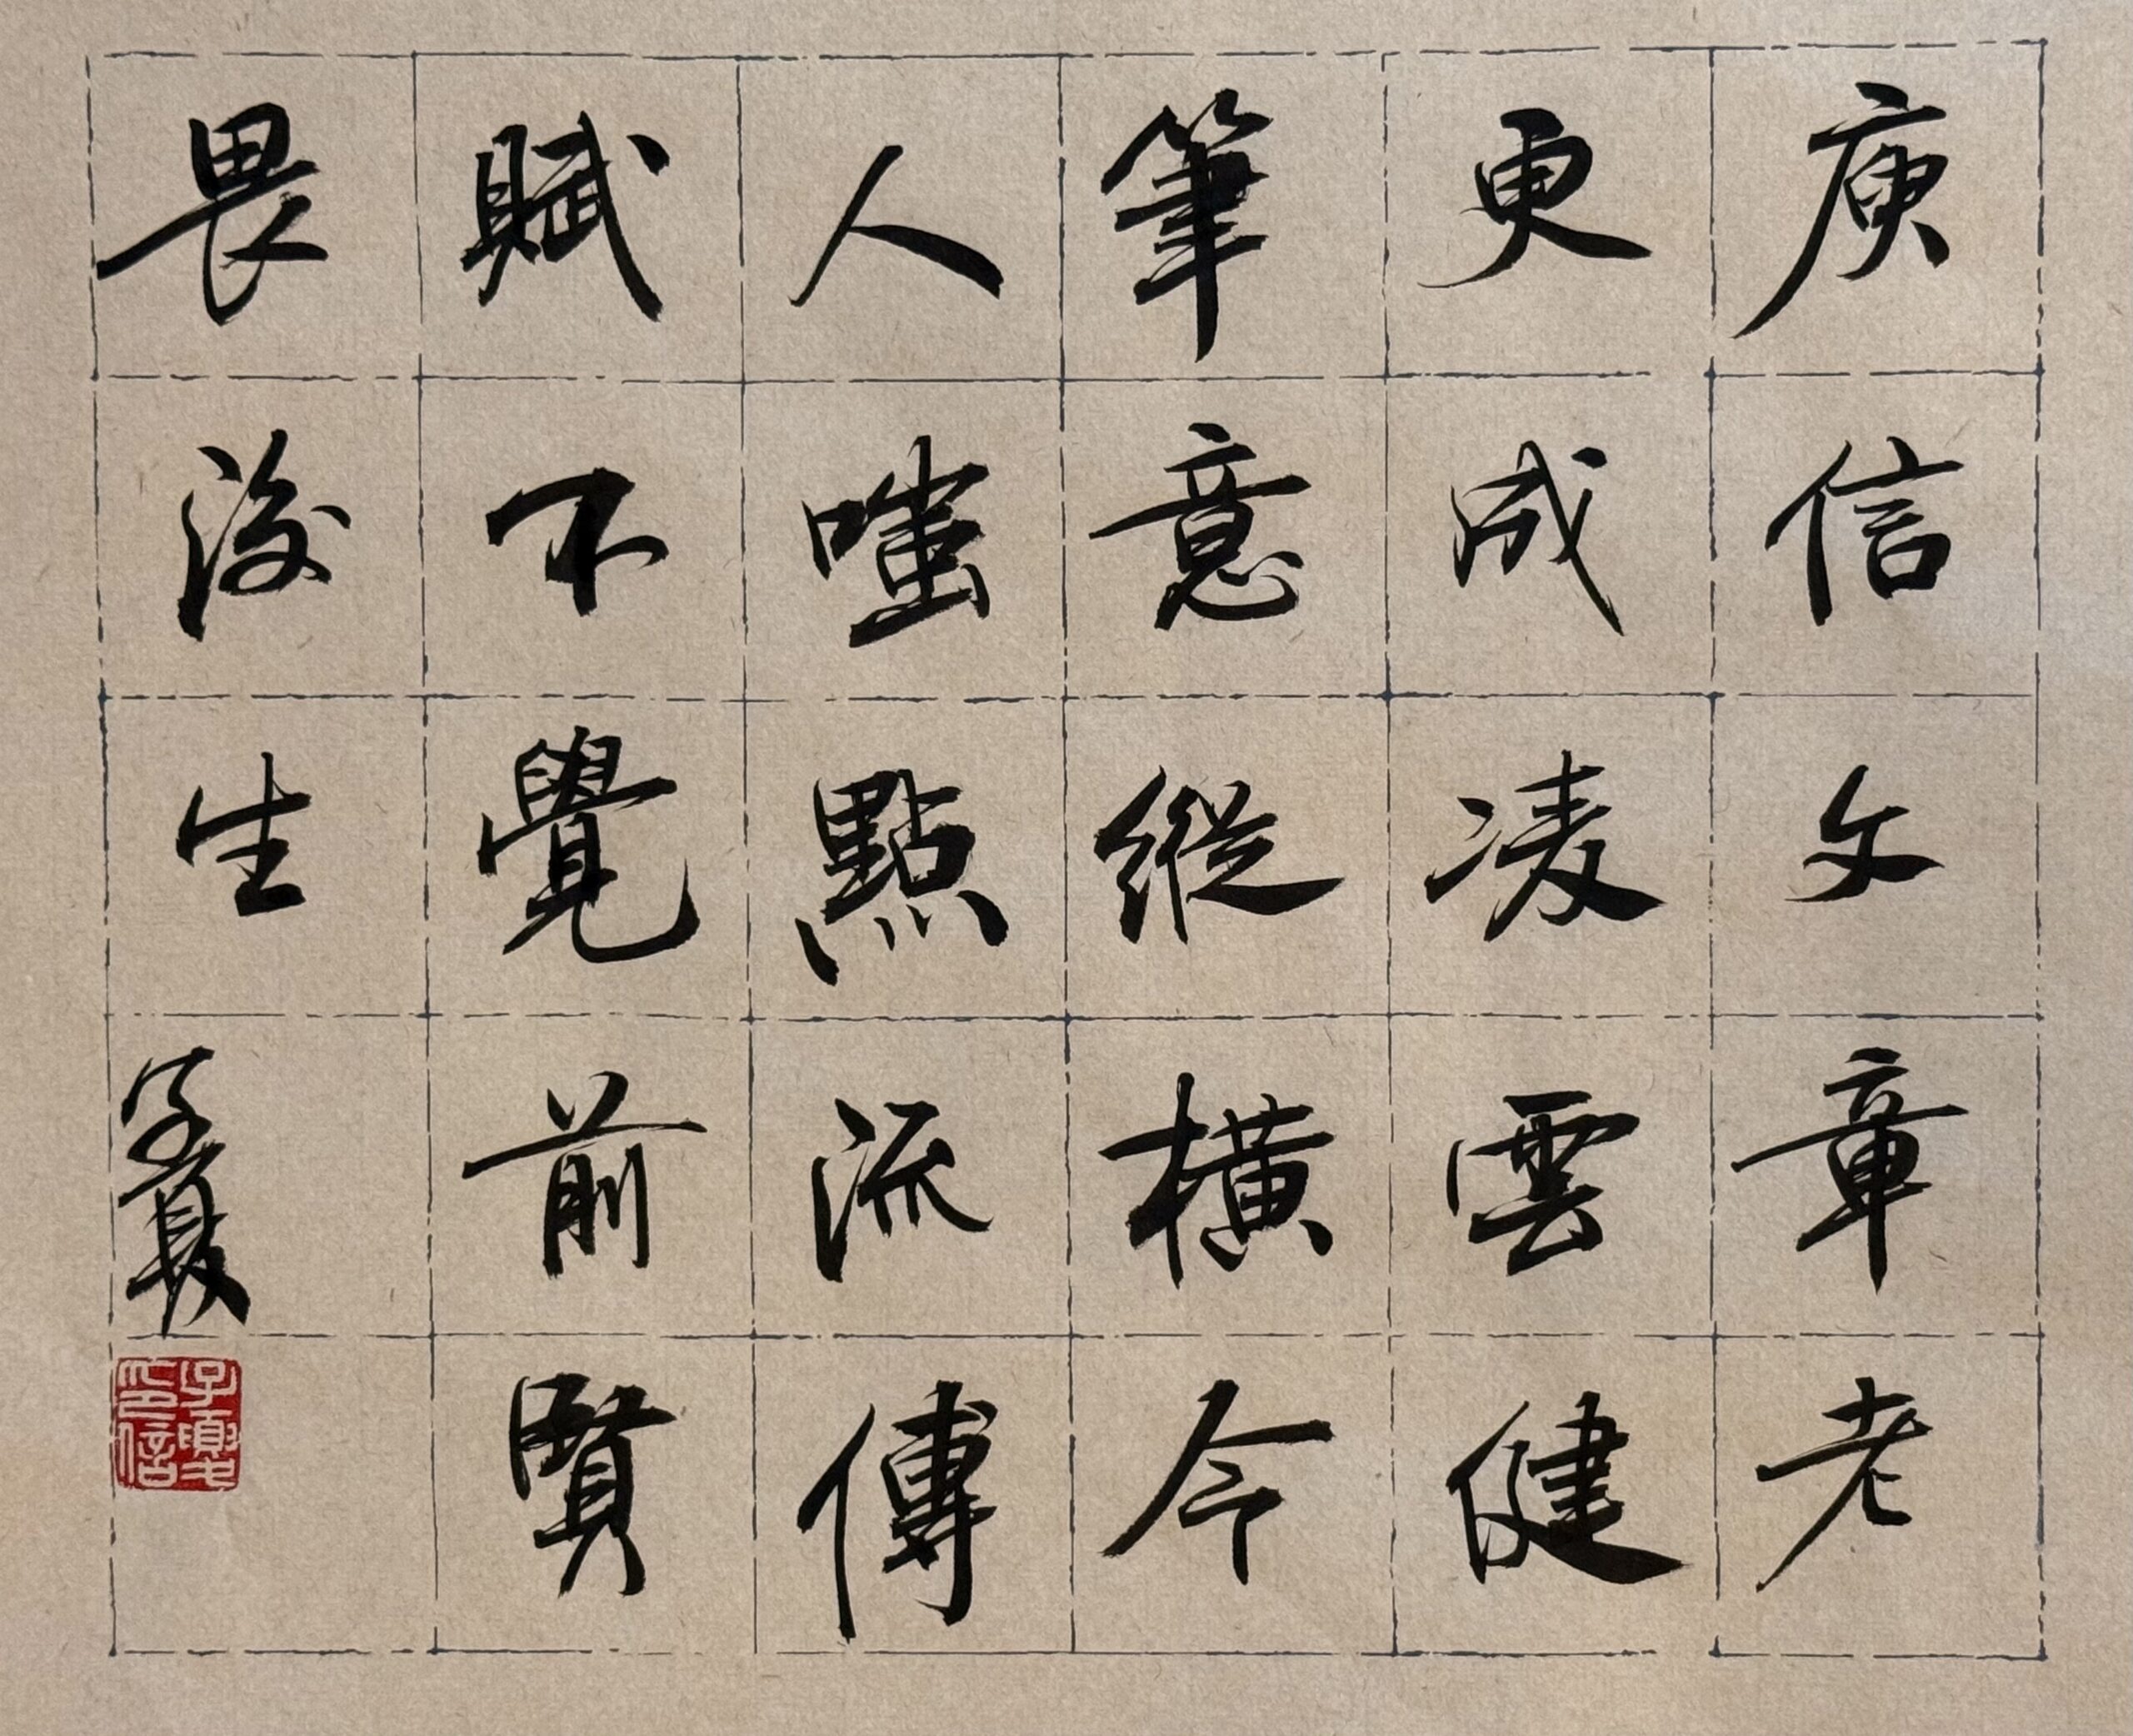 庾信文章老
更成凌雲健
筆意縱橫今
人嗤點流傳
賦不覺前賢
畏後生
子夏